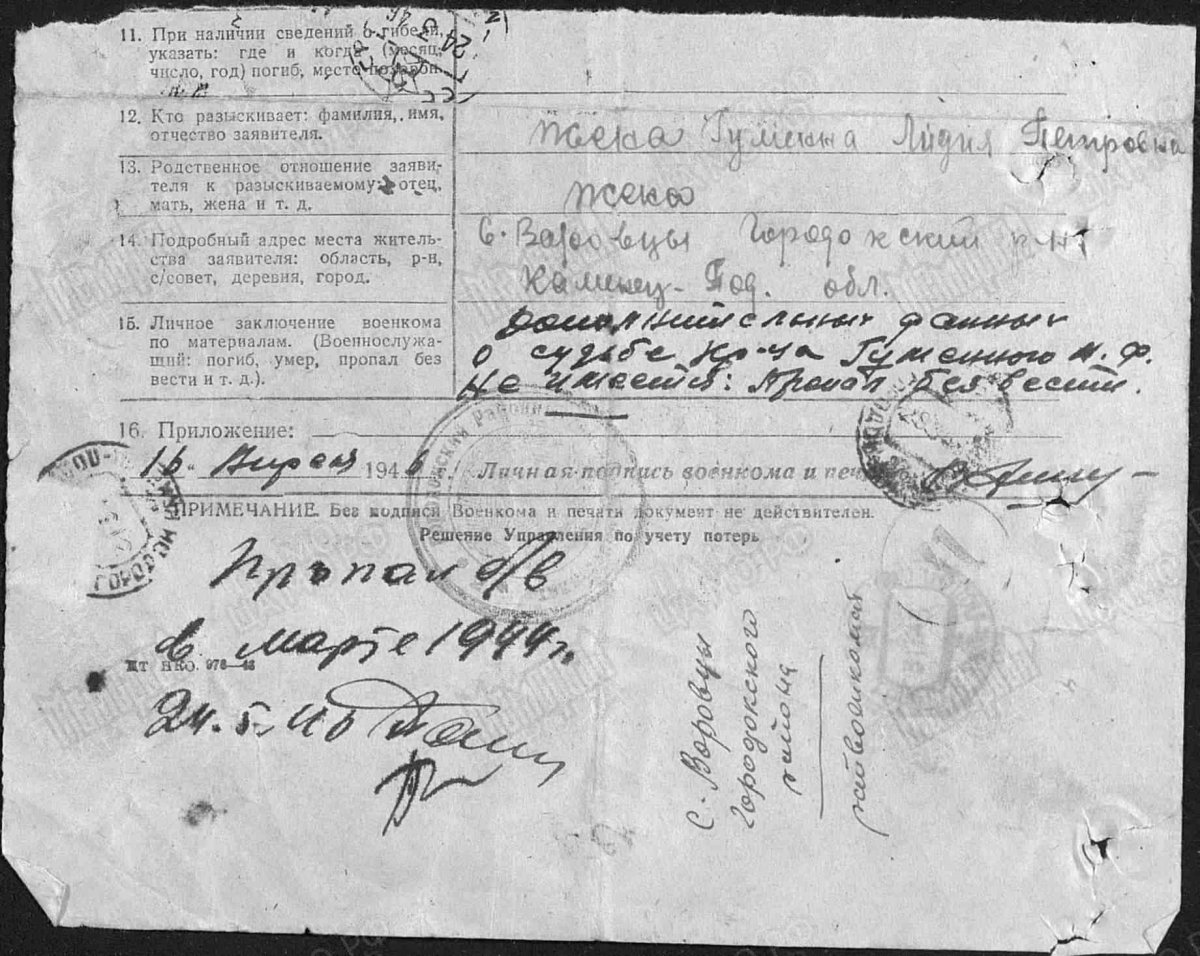 11. При наличии сведений о гибели, указать: где и когда (месяц, число, год) погиб, место похорон
12. Кто разыскивает: фамилия, имя, отчество заявителя.
жена Гуменна Лидия Петровна
13. Родственное отношение заявителя к разыскиваемому: отец, мать, жена и т. д.
жена
14. Подробный адрес места жительства заявителя: область, р-н, с/совет, деревня, город.
с. Городокский р-н
Каменец-Под. обл.
15. Личное заключение военкома по материалам. (Военнослужащий: погиб, умер, пропал без вести и т. д.).
Дополнительных данных
о судьбе кр-ца Гуменного Ф.
не имеется: Пропал без вести.
16. Приложение:
16 Апреля 1946 г. Личная подпись военкома и печать
ПРИМЕЧАНИЕ. Без подписи Военкома и печати документ не действителен.
Решение Управления по учету потерь
Пропал б/в
в марте 1944 г.
НКО. 978—46
24.5.46
с. Воровцы
Городокского
района
райвоенкомат